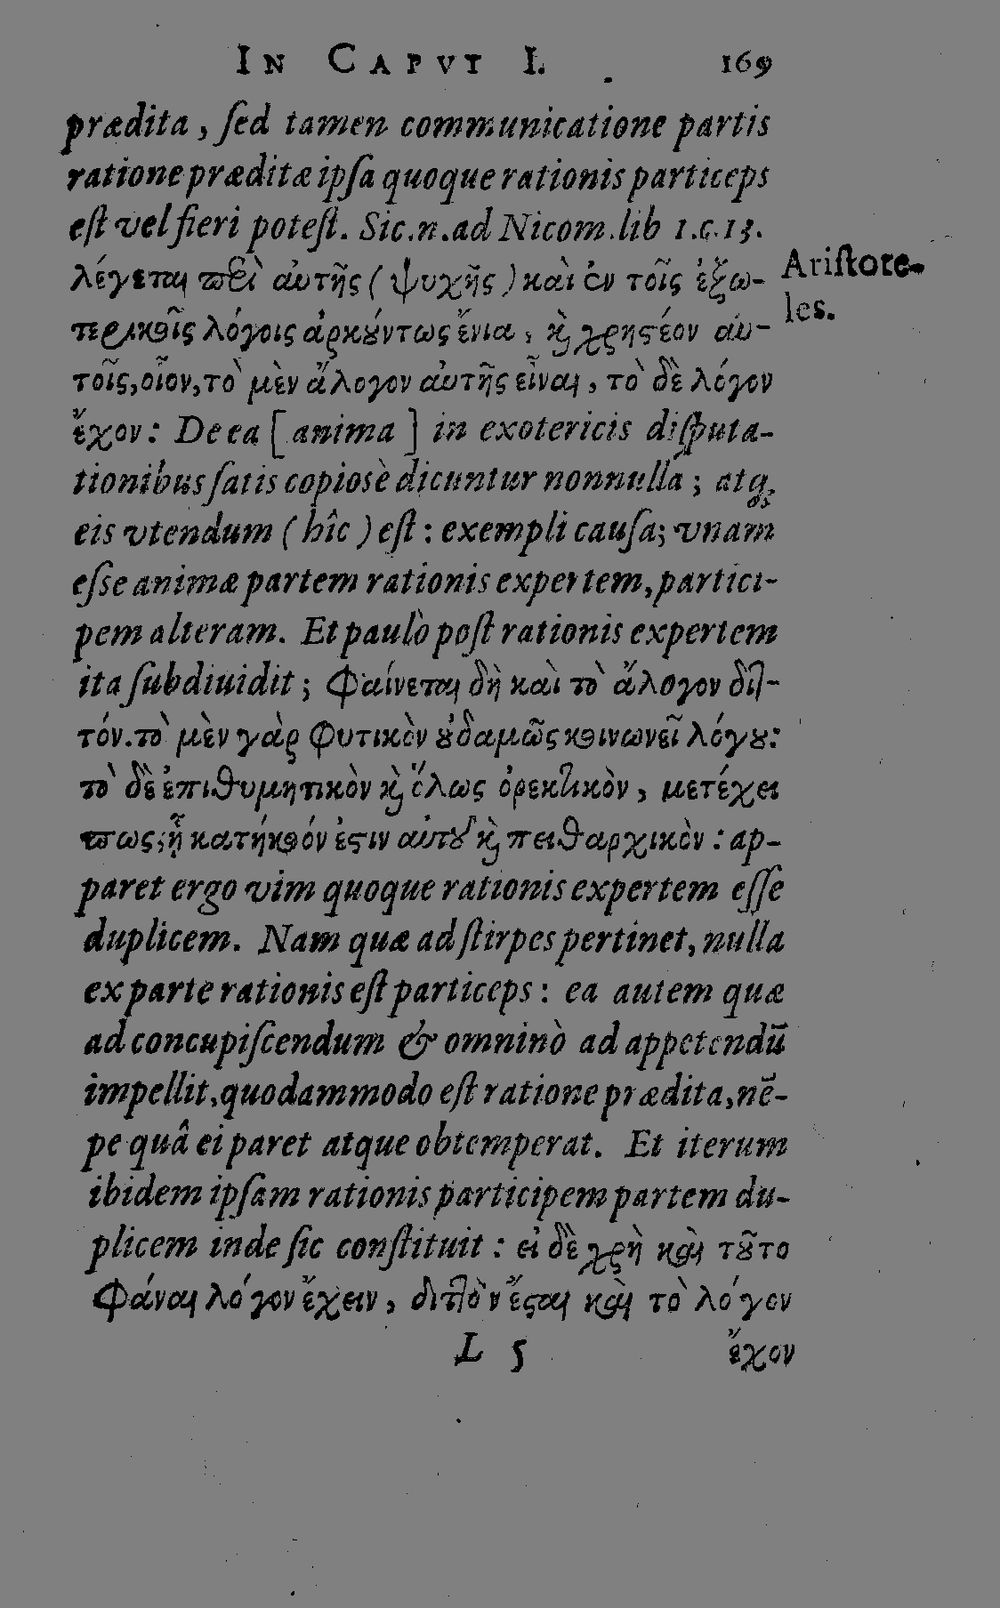 IN CAPVT I. 169
prædita, ſed tamen communicatione partis
ratione præditæ ipſa quoque rationis particeps
eſt vel fieri poteſt. Sic.n.ad Nicom.lib 1.c.13.
λέγεται περὶ αὐτῆς (ψυχῆς) καὶ ἐν τοῖς ἐξω-
Ariſtote-
les.
τερικοῖς λόγοις ἀρκούντως ἔνια, καὶ χρηστέον αυ-
τοῖς, οἷον, τὸ μὲν ἄλογον αὐτῆς εἶναι, τὸ δὲ λόγον
ἔχον: De ea [anima] in exotericis diſputa-
tionibus ſatis copiosè dicuntur nonnulla; atq;
eis vtendum (hîc) eſt: exempli cauſa; vnam
eſſe animæ partem rationis expertem, partici-
pem alteram. Et paulò poſt rationis expertem
ita ſubdiuidit; Φαίνεται δὴ καὶ τὸ ἄλογον διτ-
τόν. τὸ μὲν γὰρ φυτικὸν οὐδαμῶς κοινωνεῖ λόγου:
τὸ δὲ ἐπιθυμητικὸν καὶ ὅλως ὀρεκτικὸν, μετέχει
πως, ᾗ κατήκοόν ἐστιν αὐτοῦ καὶ πειθαρχικὸν: ap-
paret ergo vim quoque rationis expertem eſſe
duplicem. Nam quæ ad ſtirpes pertinet, nulla
ex parte rationis eſt particeps: ea autem quæ
ad concupiſcendum & omninò ad appetendū
impellit, quodammodo eſt ratione prædita, nē-
pe quâ ei paret atque obtemperat. Et iterum
ibidem ipſam rationis participem partem du-
plicem inde ſic conſtituit: εἰ δὲ χρὴ καὶ τοῦτο
φάναι λόγον ἔχειν, διττὸν ἔσται καὶ τὸ λόγον
L 5 ἔχον